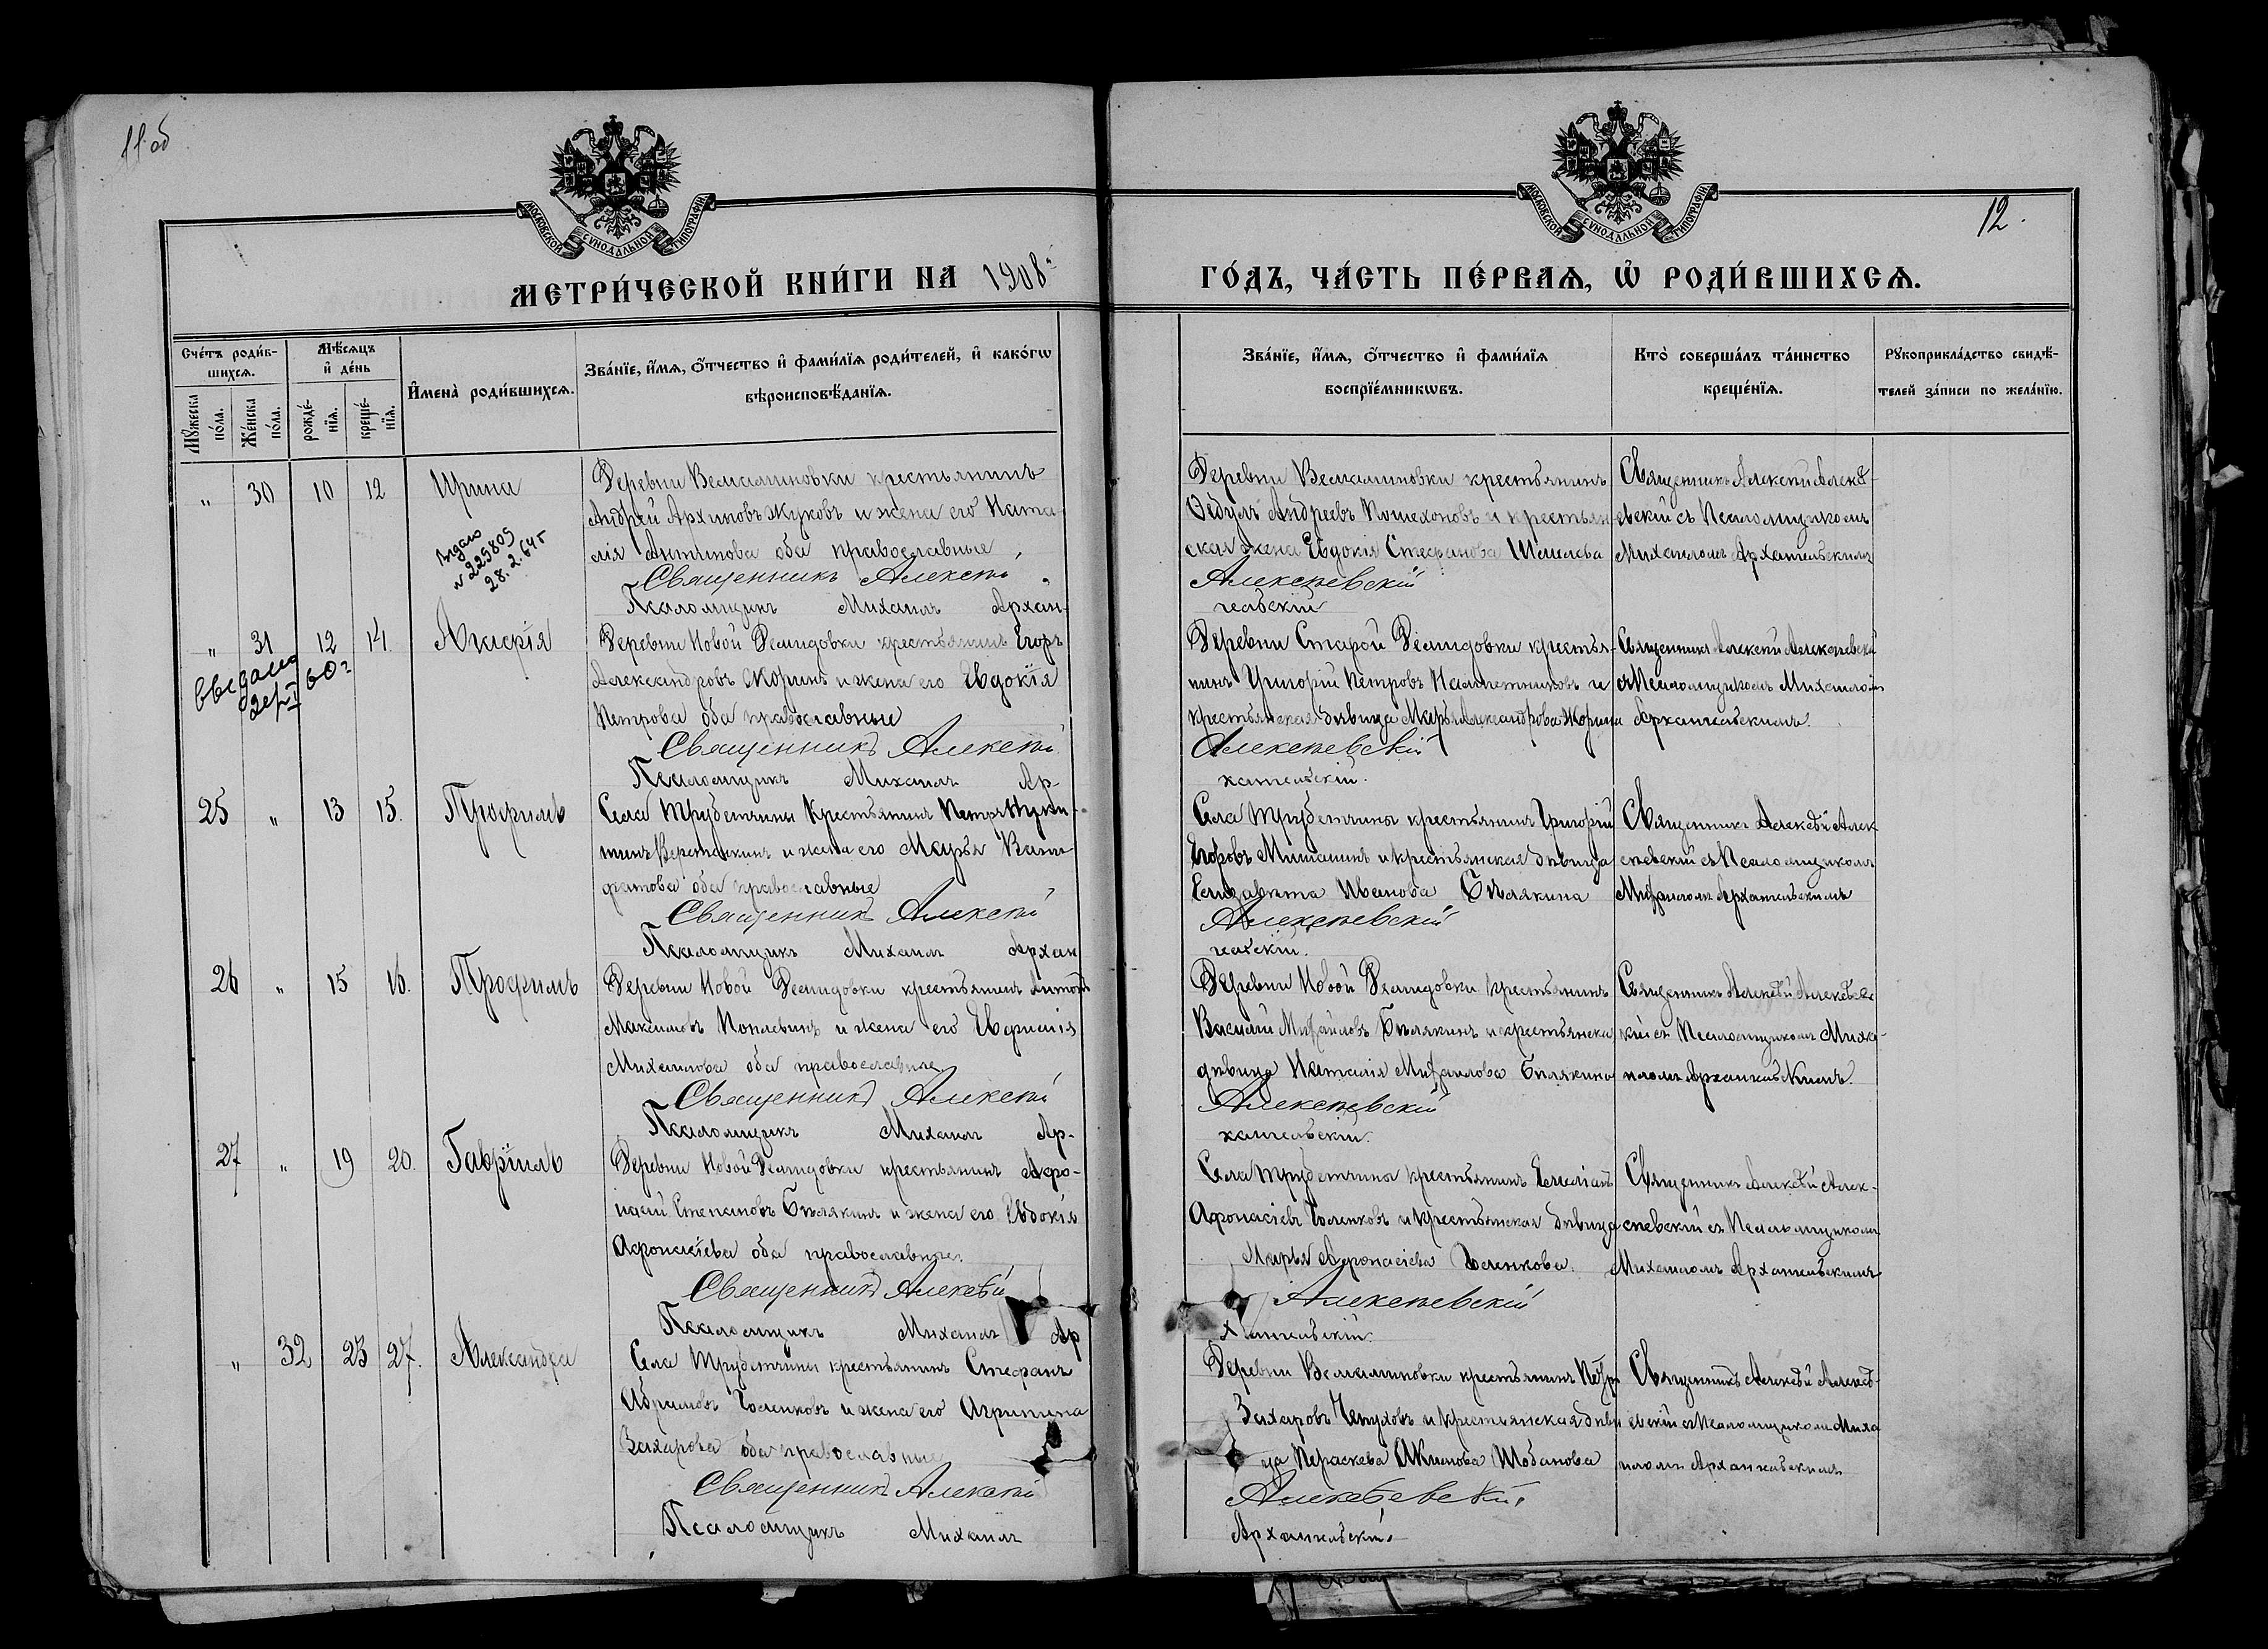 11 об
12.
МОСКОВСКОЙ СѴНОДАЛЬНОЙ ТИПОГРАФІИ
МОСКОВСКОЙ СѴНОДАЛЬНОЙ ТИПОГРАФІИ
МЕТРИ́ЧЕСКОЙ КНИ́ГИ НА 1908 ГО́ДЪ, ЧА́СТЬ ПЕ́РВАѦ, Ѡ҆ РОДИ́ВШИХСѦ.
Сче́тъ роди́в-
шихсѧ.
Мꙋ́жеска по́ла.
Же́нска по́ла.
Мѣ́сѧцъ
и҆ де́нь
рожде́-
нїѧ.
креще́-
нїѧ.
И҆мена̀ роди́вшихсѧ.
Зва́нїе, и҆́мѧ, ѻ҆́тчество и҆ фами́лїѧ роди́телей, и҆ како́гѡ
вѣроисповѣ́данїѧ.
Зва́нїе, и҆́мѧ, ѻ҆́тчество и҆ фами́лїѧ
воспрїе́мникѡвъ.
Кто̀ соверша́лъ та́инство
креще́нїѧ.
Рꙋкоприкла́дство свидѣ́-
телей за́писи по жела́нїю.
„ 30 10 12 Ирина
Деревни Вельяминовки крестьянинъ
Андрей Архиповъ Жуковъ и жена его Ната
лія Антипова оба православные
Священникъ Алексѣй
Псаломщикъ Михаилъ Архан-
Деревни Вельяминовки крестьянинъ
Ѳедулъ Андреевъ Пошехоновъ и крестьян
ская жена Евдокія Стефанова
Алексѣевскій
гельскій
Священникъ Алексѣй Алексѣ-
евскій съ Псаломщикомъ
Михаиломъ Архангельскимъ
Выдано
№ 225809
28.2.64 г
„ 31 12 14 Агнія
выдано 60 г
Деревни Новой Демидовки крестьянинъ Егоръ
Александровъ Жоринъ и жена его Евдокія
Петрова оба православные
Священникъ Алексѣй
Псаломщикъ Михаилъ Ар-
Деревни Старой Демидовки крестья-
нинъ Григорій Петровъ и
крестьянская дѣвица Марья Александрова Жорина
Алексѣевскій
хангельскій.
Священникъ Алексѣй Алексѣевскій
съ Псаломщикомъ Михаиломъ
Архангельскимъ.
25 „ 13 15. Трофимъ
Села Трубетчины Крестьянинъ Петръ Ники-
тинъ и жена его Марья Вани
фатова оба православные
Священникъ Алексѣй
Псаломщикъ Михаилъ Архан
Села Трубетчины крестьянинъ Григорій
Егоровъ Мишанинъ и крестьянская дѣвица
Елизавета Иванова Бѣлякина
Алексѣевскій
гельскій.
Священникъ Алексѣй Алек
сѣевскій съ Псаломщикомъ
Михаиломъ Архангельскимъ
26 „ 15 16. Трофимъ
Деревни Новой Демидовки крестьянинъ Антонъ
Максимовъ и жена его Евфимія
Михаилова оба православные
Священникъ Алексѣй
Псаломщикъ Михаилъ Ар-
Деревни Новой Демидовки крестьянинъ
Василій Михайловъ Бѣлякинъ и крестьянская
дѣвица Наталія Михаилова Бѣлякина
Алексѣевскій
хангельскій.
Священникъ Алексѣй Алексѣевс
кій съ Псаломщикомъ Миха-
иломъ Архангельскимъ.
27 „ 19 20. Гавріилъ
Деревни Новой Демидовки крестьянинъ Афо-
насій Степановъ Бѣлякинъ и жена его Евдокія
Афонасіева оба православные.
Священникъ Алексѣй
Псаломщикъ Михаилъ Ар
Села Трубетчины крестьянинъ Емеліанъ
Афонасіевъ Голенковъ и крестьянская дѣвица
Марья Афонасіева Голенкова.
Алексѣевскій
хангельскій.
Священникъ Алексѣй Алек-
сѣевскій съ Псаломщикомъ
Михаиломъ Архангельскимъ
„ 32 23 27. Александра
Села Трубетчины крестьянинъ Стефанъ
Абрамовъ Голенковъ и жена его Агрипина
Захарова оба православные
Священникъ Алексѣй
Псаломщикъ Михаилъ
Деревни Вельяминовки крестьянинъ Петръ
Захаровъ и крестьянская дѣви
ца Параскева Акимова
Алексѣевскій.
Архангельскій.
Священникъ Алексѣй Алексѣ-
евскій съ Псаломщикомъ Миха
иломъ Архангельскимъ